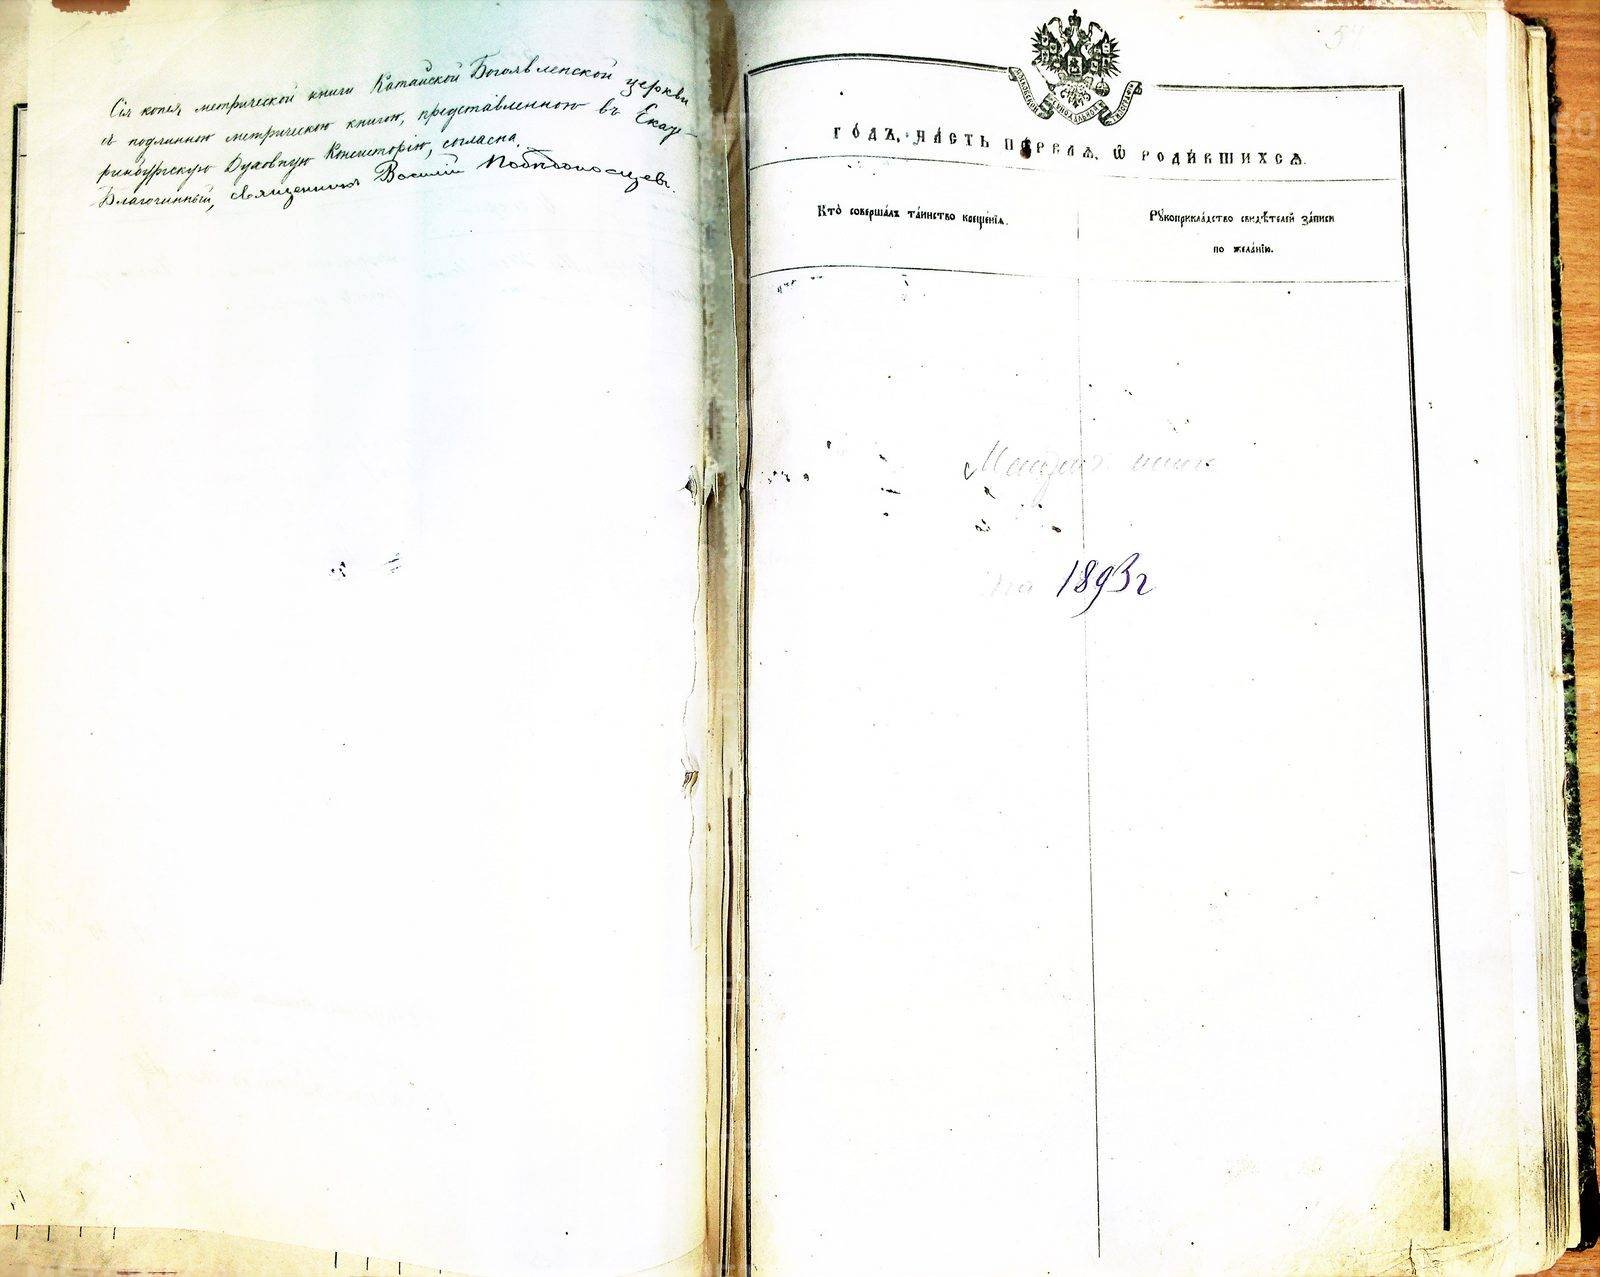 Сія копія метрической книги Катайской Богоявленской церкви
съ подлинною метрическою книгою, представленною въ Екате-
ринбургскую Духовную Консисторію, согласна.
Благочинный, священникъ Василій Побѣдоносцевъ.
ГО́ДЪ, ЧА́СТЬ ПЕ́РВАѦ, Ѡ҆ РОДИ́ВШИХСѦ.
Кто̀ соверша́лъ та́инство креще́нїѧ.
Рꙋкоприкла́дство свидѣ́телей за́писи
по жела́нїю.
на 1893 г